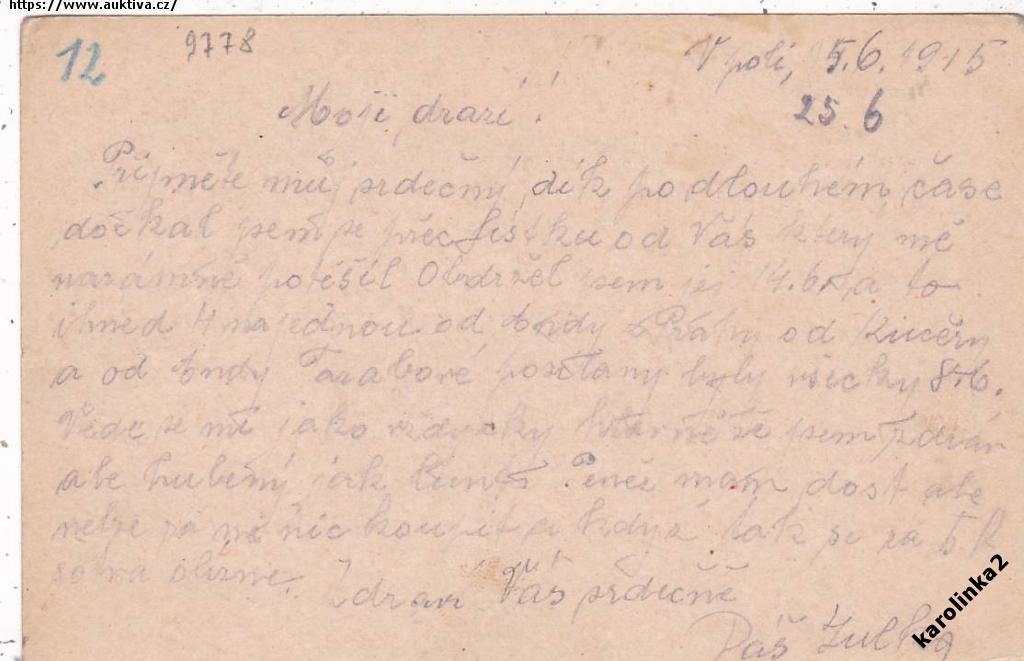 https://www.auktiva.cz/
12
9778
V poli, 5.6.1915
25.6
Moji drazí!
Přijměte můj srdečný dík po dlouhém čase
dočkal jsem se přec lístku od Vás který mě
narámně potěšil Obdržel jsem jej 14.6. a to
ihned 4 najednou od Andy z Prahy od Kučery
a od Andy poslany byly všecky 8.6.
Vede se mi jako vždycky zdráv
ale hubený jak Peněz mam dost ale
nelze za ně nic koupit a když tak se za 5 K
Zdraví Vás srdečně
Váš
karolinka2